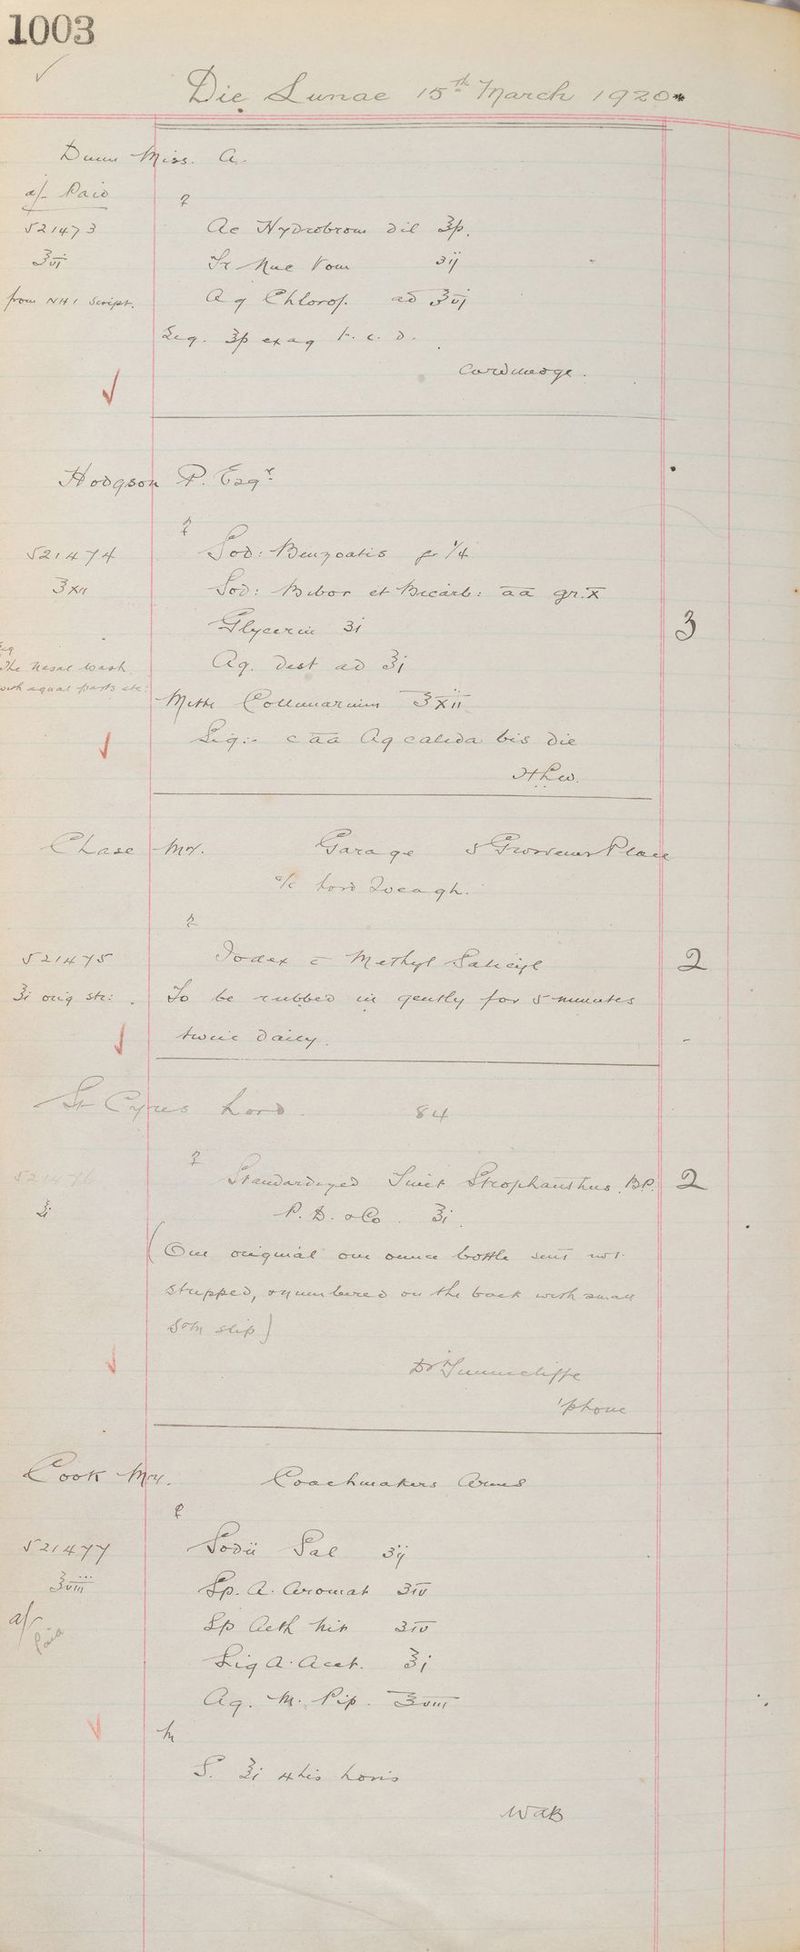 1003
Die Lunae 15th March 1920
Dunn Miss. A.
a/- Paid
℞
521473
Ac Hydrobrom dil ʒp.
℥vj
Tr Nuc Vom ʒij
from NHI Script.
Aq Chlorof. ad ℥vj
Sig. ʒp ex aq t. c. d.
Hodgson P. Esqr.
℞
521474
Sod: Benzoatis gr 1/4
℥xii
Sod: Bibor et Bicarb: āā gr. x
3
Glycerin ʒi
Sig
The Nasal Wash
with equal parts etc:
Aq. Dest ad ℥j
Mitte Collunarium ℥xii
Sig:- c āā Aq calida bis die
H.L.W.
Chase Mr. Garage 5 Grosvenor Place
a/c Lord Iveagh.
℞
521475
Iodex c Methyl Salicyl
2
℥i orig str:
To be rubbed in gently for 5 minutes
twice daily.
St Cyres Lord 84
℞
521476
Standardized Tinct Strophanthus. B.P.
2
℥i
P. D. & Co. ℥i
(One original one ounce bottle sent not
stripped, & numbered on the back with small
slip)
Dr Tunnicliffe
'phone
Cook Mr. Coachmakers Arms
℞
521477
Sodii Sal ʒij
℥viii
Sp. A. Aromat ʒiv
a/- Paid
Sp Aeth Nit ʒiv
Liq A. Acet. ℥j
Aq. M. Pip. ℥viii
M
S. ℥i 4tis horis
WAB